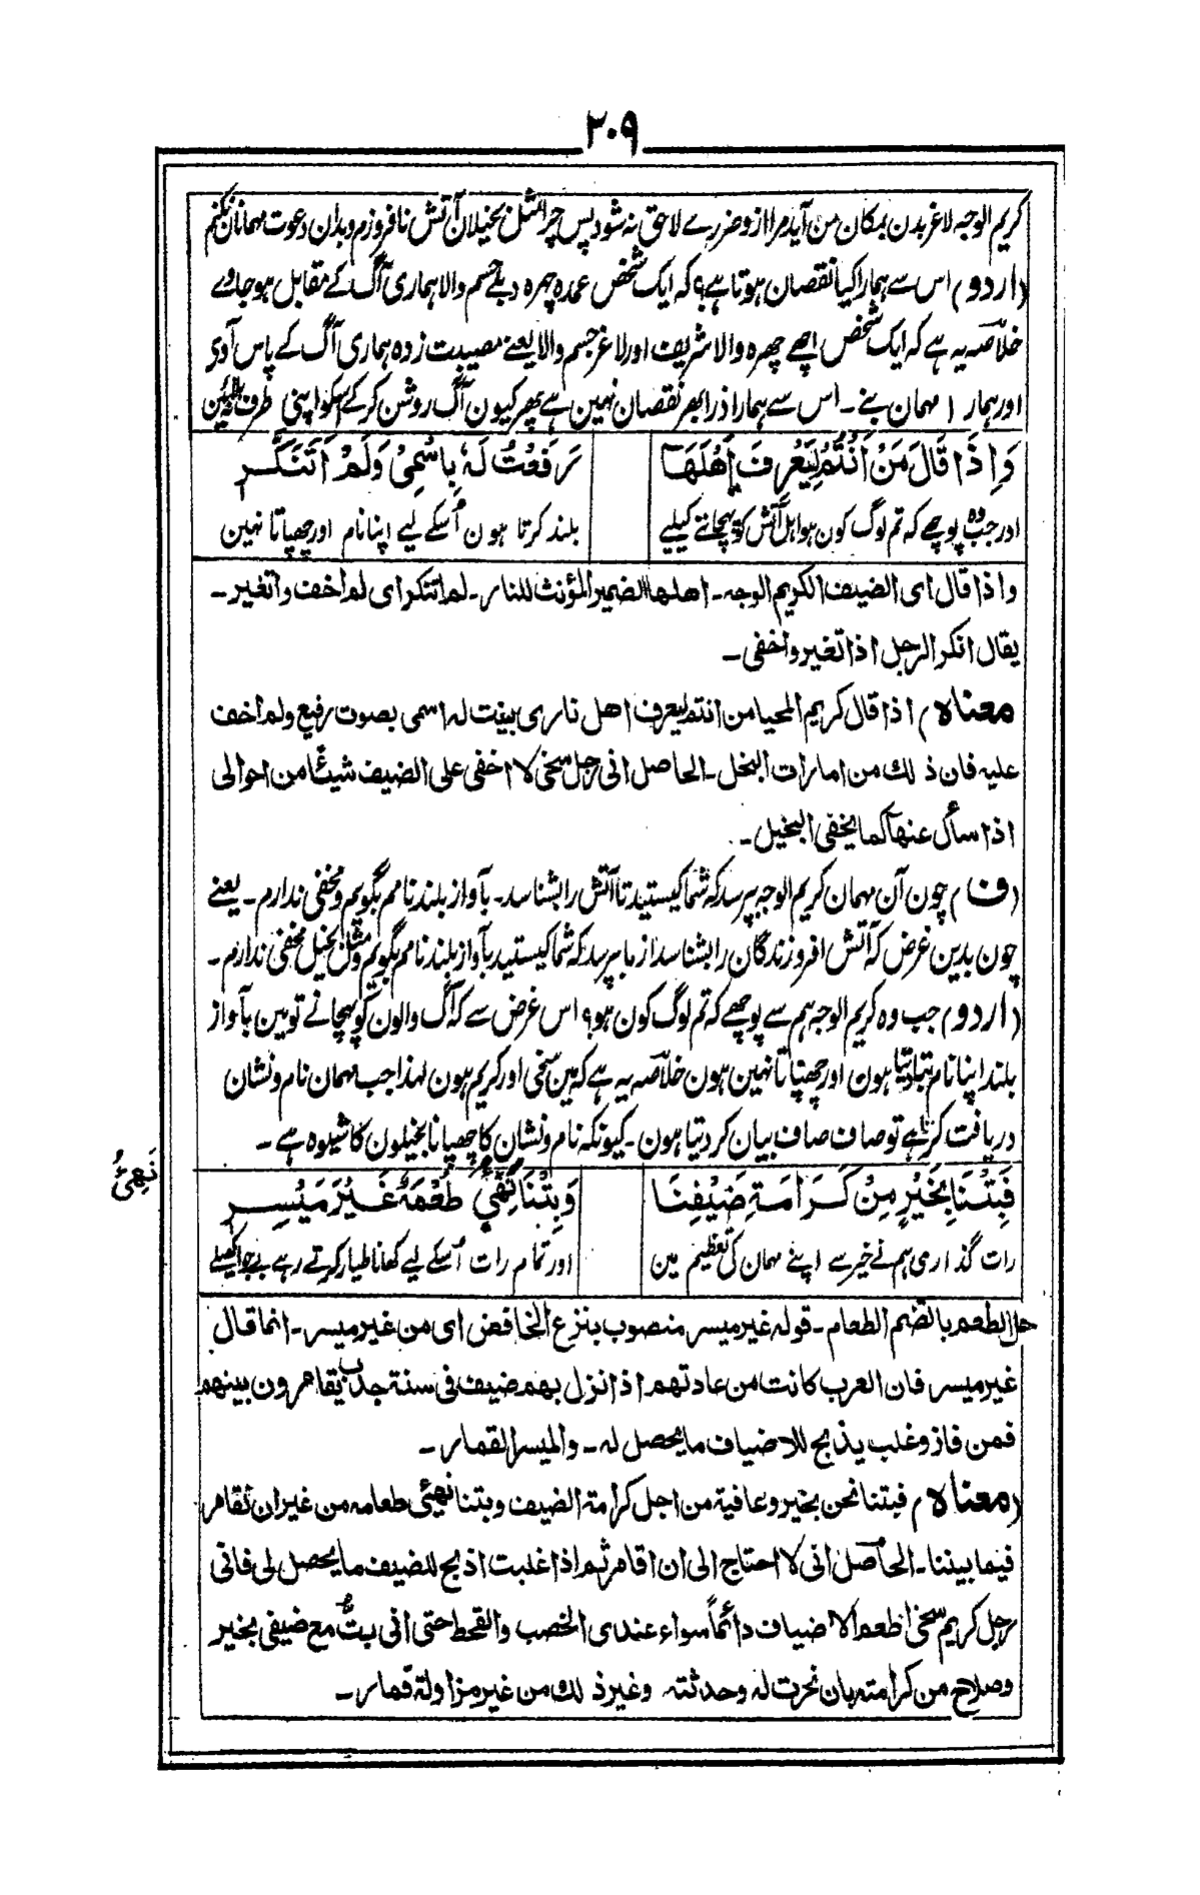 ۳۰۹
کریم الوجہ لاغر بدن بمکان من آید مرا ازو ضررے لاحق نہ شود پس چرا مثل بخیلان آتش نافروزم وبدان دعوت مہمانان نکنم
(اردو) اس سے ہمارا کیا نقصان ہوتا ہے؟ کہ ایک شخص عمدہ چہرہ دبلے جسم والا ہماری آگ کے مقابل ہوجاوے
خلاصہ یہ ہے کہ ایک شخص اچھے چہرہ والا شریف اور لاغر جسم والا یعنے مصیبت زدہ ہماری آگ کے پاس آوی
اور ہمار ا مہمان بنے ۔ اس سے ہمارا ذرا بھر نقصان نہین ہے پھر کیون آگ روشن کرکے اسکو اپنی طرف
وَاِذَا قَالَ مَنْ اَنْتُمْ لِیَعْرِفَ اَهْلَهَا
رَفَعْتُ لَهٗ بِاسْمِیْ وَلَمْ اَتَنَکَّرِ
اور جب وہ پوچھے کہ تم لوگ کون ہو اہل آتش کو پہچاننے کیلیے
بلند کرتا ہون اُسکے لیے اپنا نام اور چھپاتا نہین
واذا قال ای الضیف الکریم الوجہ ۔ اھلھا الضمیر المؤنث للنار ۔ لم اتنکر ای لم اخف واتغیر ۔
یقال انکر الرجل اذا تغیر واخفی ۔
معناہ) اذا قال کریم المحیا من انتم لیعرف اھل ناری بینت لہ اسمی بصوت رفیع ولم اخف
علیہ فان ذلك من امارات البخل ۔ الحاصل انی رجل سخی لا اخفی علی الضیف شیئًا من احوالی
اذا سأل عنھا کما یخفی البخیل ۔
(ف) چون آن مہمان کریم الوجہ بپرسد کہ شما کیستید تا آتش را بشناسد ۔ بآواز بلند نامم بگویم ومخفی ندارم ۔ یعنے
چون بدین غرض کہ آتش افروزندگان را بشناسد از ما پرسد کہ شما کیستید بآواز بلند نامم بگویم ومثل بخیل مخفی ندارم ۔
(اردو) جب وہ کریم الوجہ ہم سے پوچھے کہ تم لوگ کون ہو؟ اس غرض سے کہ آگ والون کو پہچانے تو مین بآواز
بلند اپنا نام بتا دیتا ہون اور چھپاتا نہین ہون خلاصہ یہ ہے کہ مین سخی اور کریم ہون لہذا جب مہمان نام ونشان
دریافت کرتا ہے تو صاف صاف بیان کر دیتا ہون ۔ کیونکہ نام ونشان کا چھپانا بخیلون کا شیوہ ہے ۔
نُهَیِّئُ
فَبِتْنَا بِخَیْرٍ مِنْ کَرَامَةِ ضَیْفِنَا
وَبِتْنَا نُهَیِّئُ طُعْمَةً غَیْرَ مَیْسِرِ
رات گذاری ہم نے خیر سے اپنے مہمان کی تعظیم مین
اور تمام رات اُسکے لیے کھانا طیار کرتے رہے بے جوا کھیلے
حل الطعم بالضم الطعام ۔ قولہ غیر میسر منصوب بنزع الخافض ای من غیر میسر ۔ انما قال
غیر میسر فان العرب کانت من عادتھم اذا نزل بھم ضیف فی سنة جدب یقامرون بینھم
فمن فاز وغلب یذبح للاضیاف ما یحصل لہ ۔ والمیسر القمار ۔
(معناہ) فبتنا نحن بخیر وعافیة من اجل کرامة الضیف وبتنا نھیئی طعامہ من غیر ان نقامر
فیما بیننا ۔ الحاصل انی لا احتاج الی ان اقامر ثم اذا غلبت اذبح للضیف ما یحصل لی فانی
رجل کریم سخی اطعم الاضیاف دائماً سواء عندی الخصب والقحط حتی انی بتُّ مع ضیفی بخیر
وصلاح من کرامتہ بان نحرت لہ وحدثتہ وغیر ذلك من غیر مزاولة قمار ۔